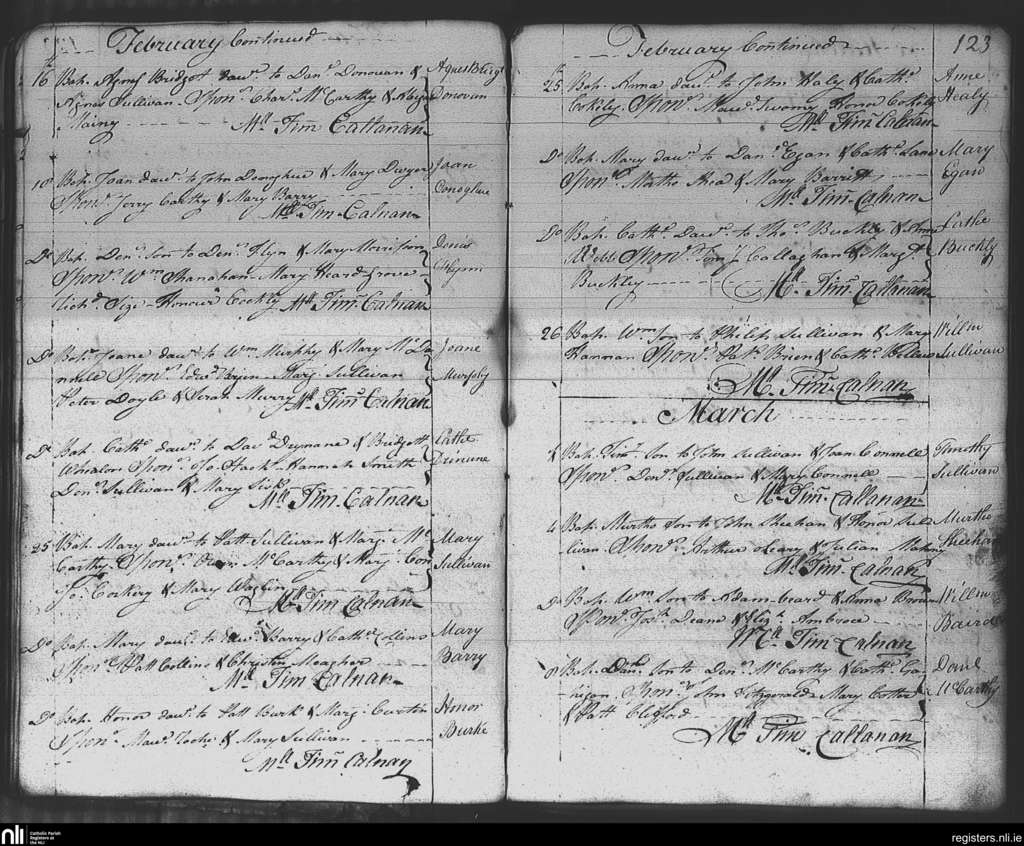 February Continued
16 Bap. Agnes Bridget dawr. to Danl. Donovan &
Agnes Sullivan. Sponrs. Chars. McCarthy & Abigal
Mainy
Mr. Timn. Callanan
Agnes Bridgt
Donovan
18 Bap. Joan dawr. to John Donoghue & Mary Dwyer
Sponrs. Jerry Carthy & Mary Barry
Mr. Tim. Calnan
Joan
Donoghue
Do. Bap. Dens. Son to Denl. Flyn & Mary Morrison
Sponrs. Wm. Shanahan Mary Heard
Mr. Timn. Calnan
Denis
O'Flynn
Do. Bap. Joane dawr. to Wm. Murphy & Mary
Sponrs. Edwd. Mary Sullivan
Peter Doyle & Sarah Murry Mr. Timn. Calnan
Joane
Murphy
Do. Bap. Cathe. dawr. to Davd. Drynane & Bridgett
Whealon Sponrs. Hannah Smith
Denl. Sullivan & Mary
Mr. Tim. Calnan
Cathe
Drinane
25 Bap. Mary dawr. to Patt Sullivan & Marg. Mc
Carthy Sponrs. Owen McCarthy & Mary Con
Jo. Corkery & Mary
Mr. Tim Calnan
Mary
Sullivan
Do. Bap. Mary dawr. to Edwd. Barry & Cathe. Collins
Sponrs. Patt Collins & Christin Meagher
Mr. Tim Calnan
Mary
Barry
Do. Bap. Honor dawr. to Patt Burke & Marg. Curtin
Sponrs. Maure. Roche & Mary Sullivan
Mr. Timn. Calnan
Honor
Burke
February Continued
123
25 Bap. Anna dawr. to John Haly & Cathe.
Cokely Sponrs. Maure. Twomy Honor Cokely
Mr. Timn. Calnan
Anne
Healy
Do. Bap. Mary dawr. to Danl. Egan & Cathe. Lane
Sponrs. Murtho Shea & Mary Barrett
Mr. Tim. Calnan
Mary
Egan
Do. Bap. Cathe. Dawr. to Thos. Buckley & Anna
Webb Sponrs. Callaghan & Margt.
Buckley
Mr. Tim. Callanan
Cathe
Buckly
26 Bap. Wm. Son to Philip Sullivan & Mary
Hannan Sponrs. Patk. Brien & Cathe. Bellew
Mr. Timn. Calnan
Willm
Sullivan
March
Bap. Timy. Son to John Sullivan & Joan Connell
Sponrs. Denl. Sullivan & Mary Connell
Mr. Tim. Callanan
Timothy
Sullivan
4 Bap. Murtho Son to John Sheehan & Honor Sul
livan. Sponrs. Arthur oLeary & Julian Mahony
Mr. Tim. Calnan
Murtho
Sheehan
Do. Bap. Wm. Son to Adam beard & Anna Brown
Sponrs. Josh. Deane & Ambrose
Mr. Tim Calnan
Willm
Baird
8 Bap. Danl. Son to Denl. McCarthy & Cathe. Ga
Sponrs. Ann Fitzgerald Mary Cotter
& Patt Clifford
Mr. Tim Callanan
Daniel
McCarthy
nli
Catholic Parish
Registers at
the NLI
registers.nli.ie